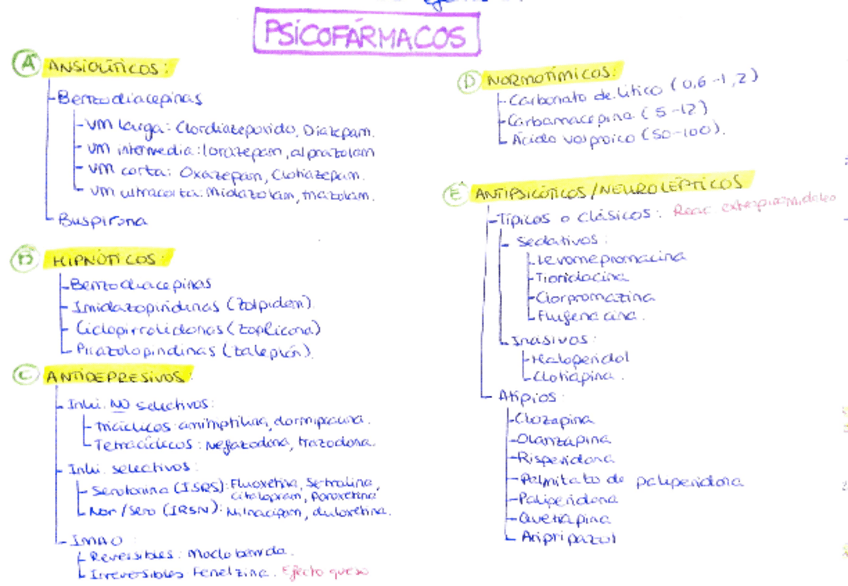 PSICOFÁRMACOS
A ANSIOLÍTICOS:
Benzodiacepinas
VM larga: Clordiazepoxido, Diazepam.
VM intermedia: lorazepam, alprazolam
VM corta: Oxazepam, Clotiazepam.
VM ultracorta: Midazolam, triazolam.
Buspirona
B HIPNÓTICOS:
Benzodiacepinas
Imidazopiridinas (Zolpidem)
Ciclopirrolidonas (Zoplicona)
Pirazolopiridinas (Zaleplón).
C ANTIDEPRESIVOS:
Inhi. NO selectivos:
Tricíclicos: amitriptilina, clormipramina.
Tetracíclicos: Nefazodona, trazodona.
Inhi. selectivos:
Serotonina (ISRS): Fluoxetina, Sertralina,
citalopram, Paroxetina
Nor/Sero (IRSN): Milnacipam, duloxetina.
IMAO:
Reversibles: Moclobemida.
Irreversibles Fenelzina. Efecto queso
D NORMOTÍMICOS:
Carbonato de litico (0,6-1,2)
Carbamacepina (5-12)
Ácido valproico (50-100).
E ANTIPSICÓTICOS/NEUROLÉPTICOS
Típicos o clásicos: Reac extrapiramidales
Sedativos:
Levomepromacina
Tioridacina
Clorpromazina
Flufenacina.
Inasivos:
Haloperidol
Clotiapina.
Atípios:
Clozapina
Olanzapina
Risperidona
Palmitato de paliperidona
Paliperidona
Quetiapina
Aripripazol